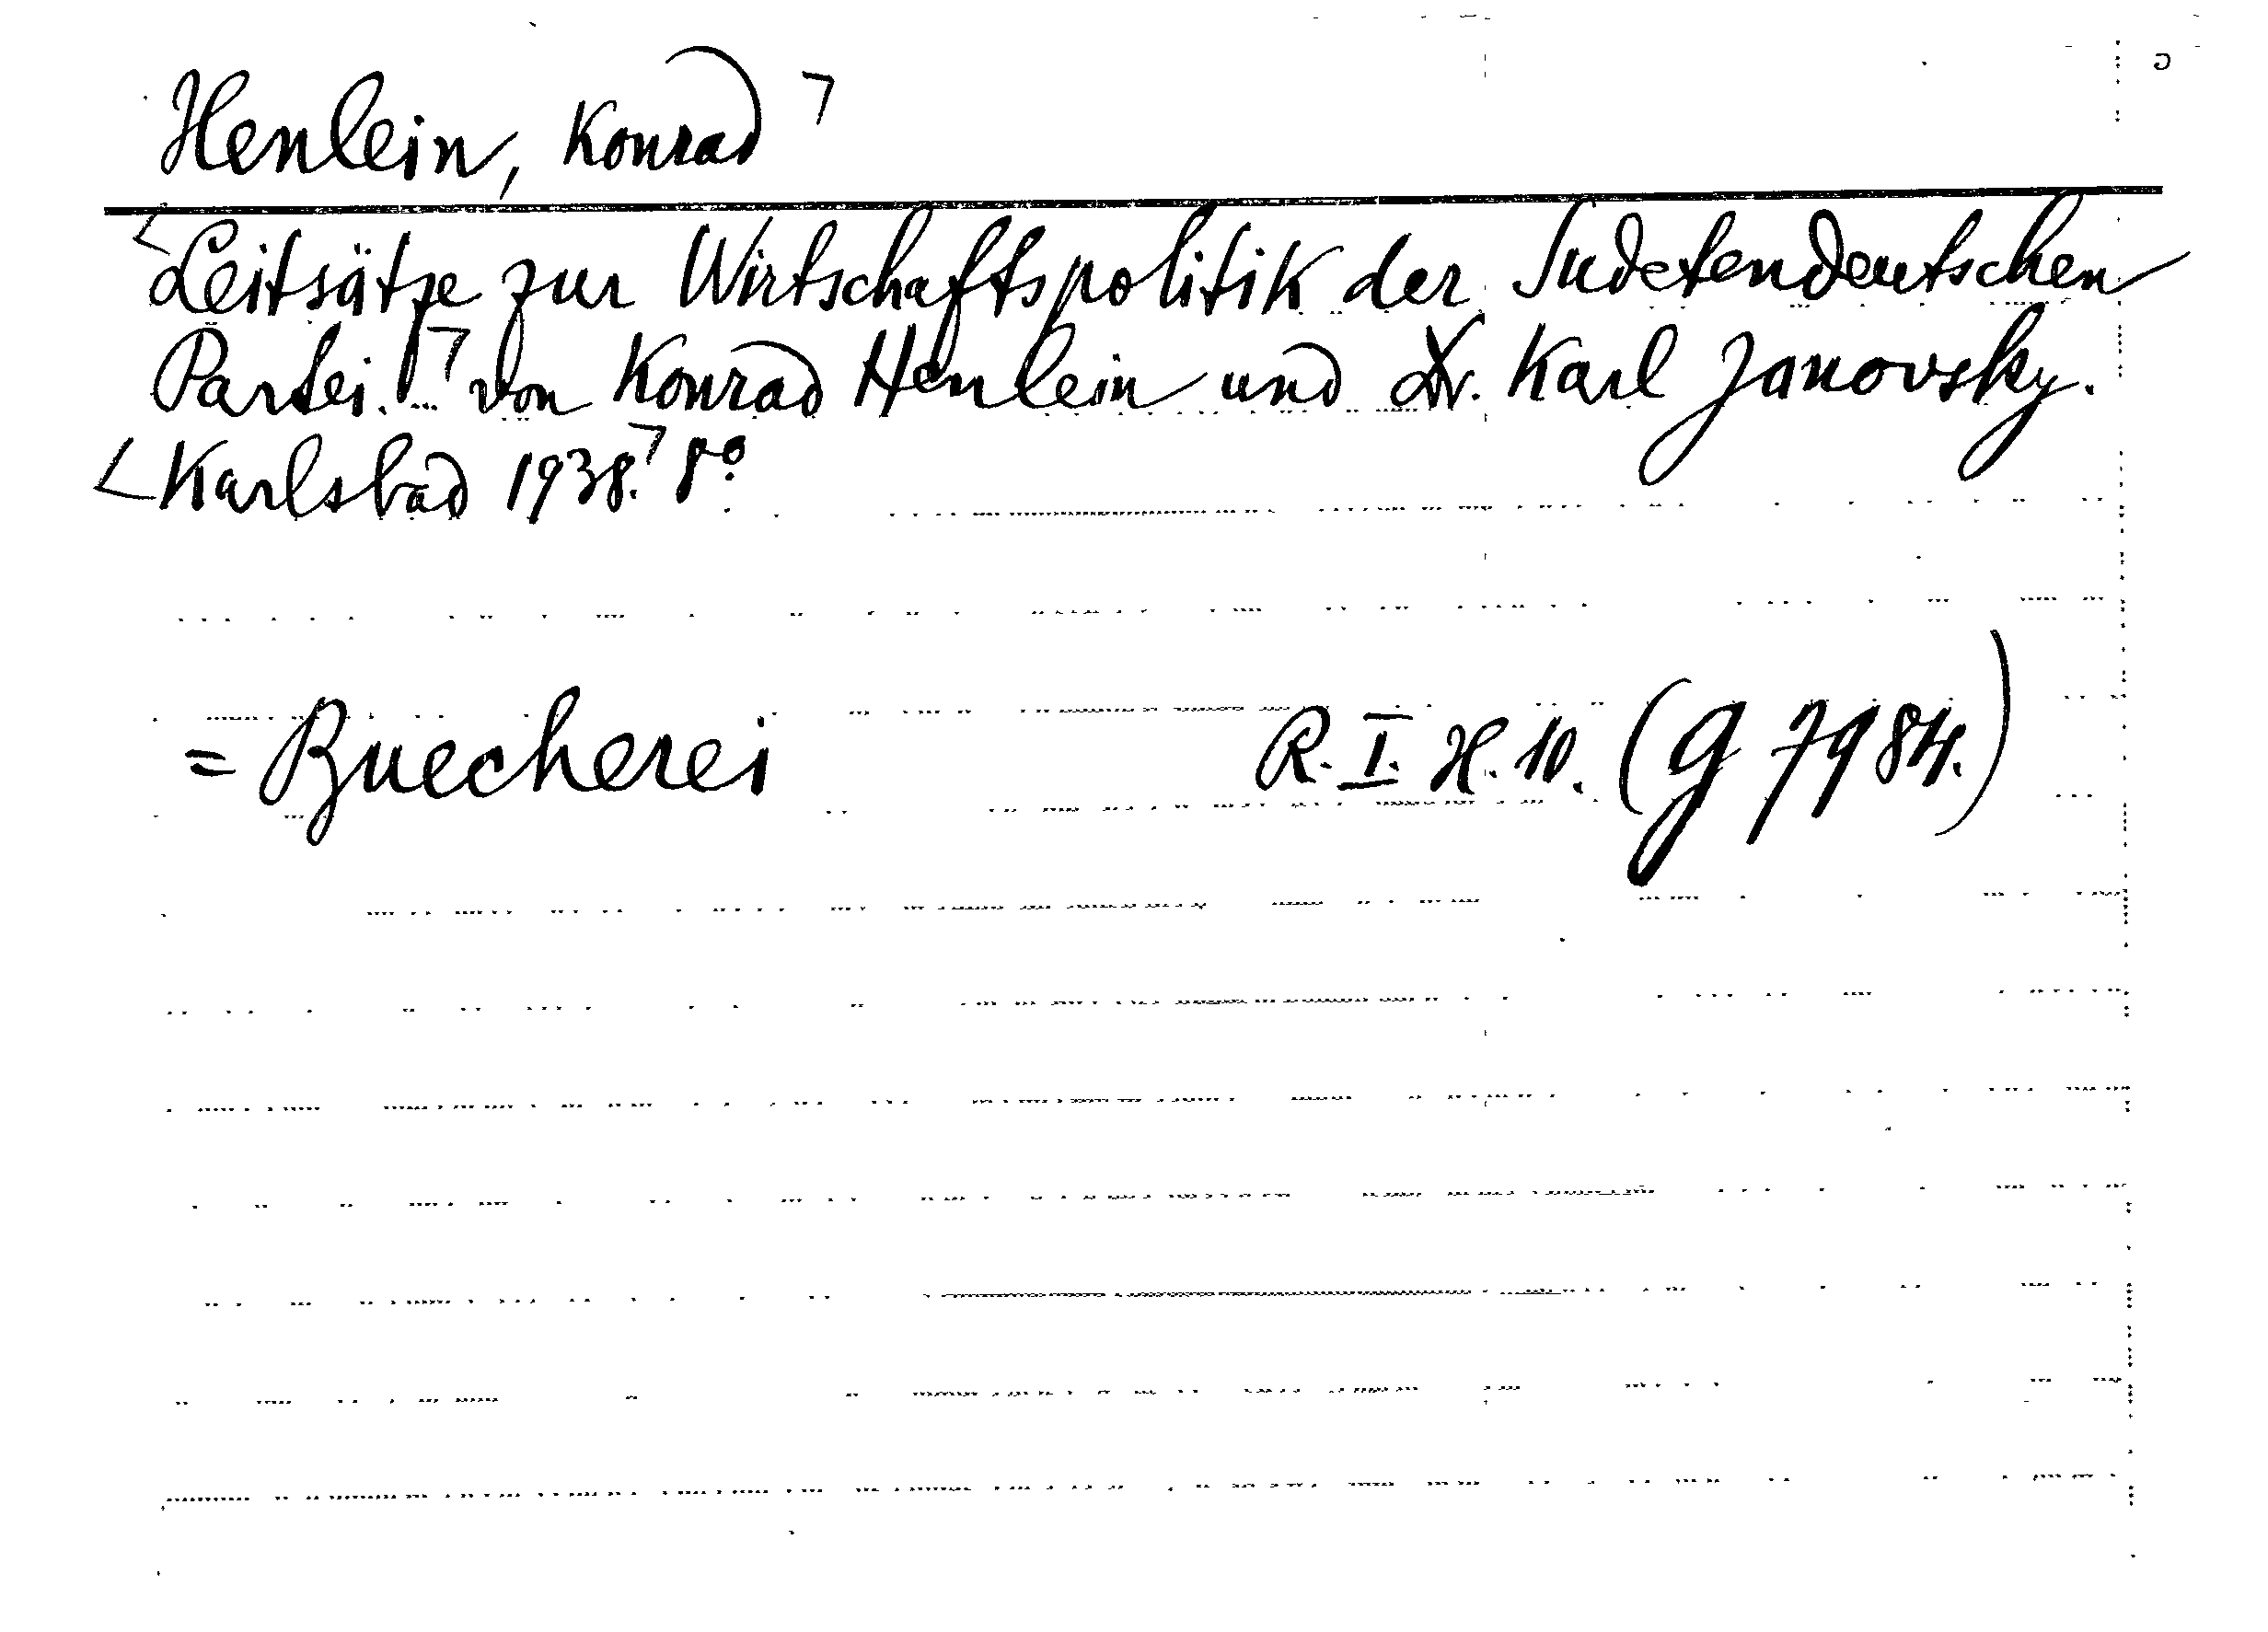 Henlein, Konrad
Leitsätze zur Wirtschaftspolitik der Sudetendeutschen
Partei. von Konrad Henlein und Dr. Karl Janovsky.
Karlsbad 1938. 8º
= Buecherei R. I. H. 10. (g 7984.)